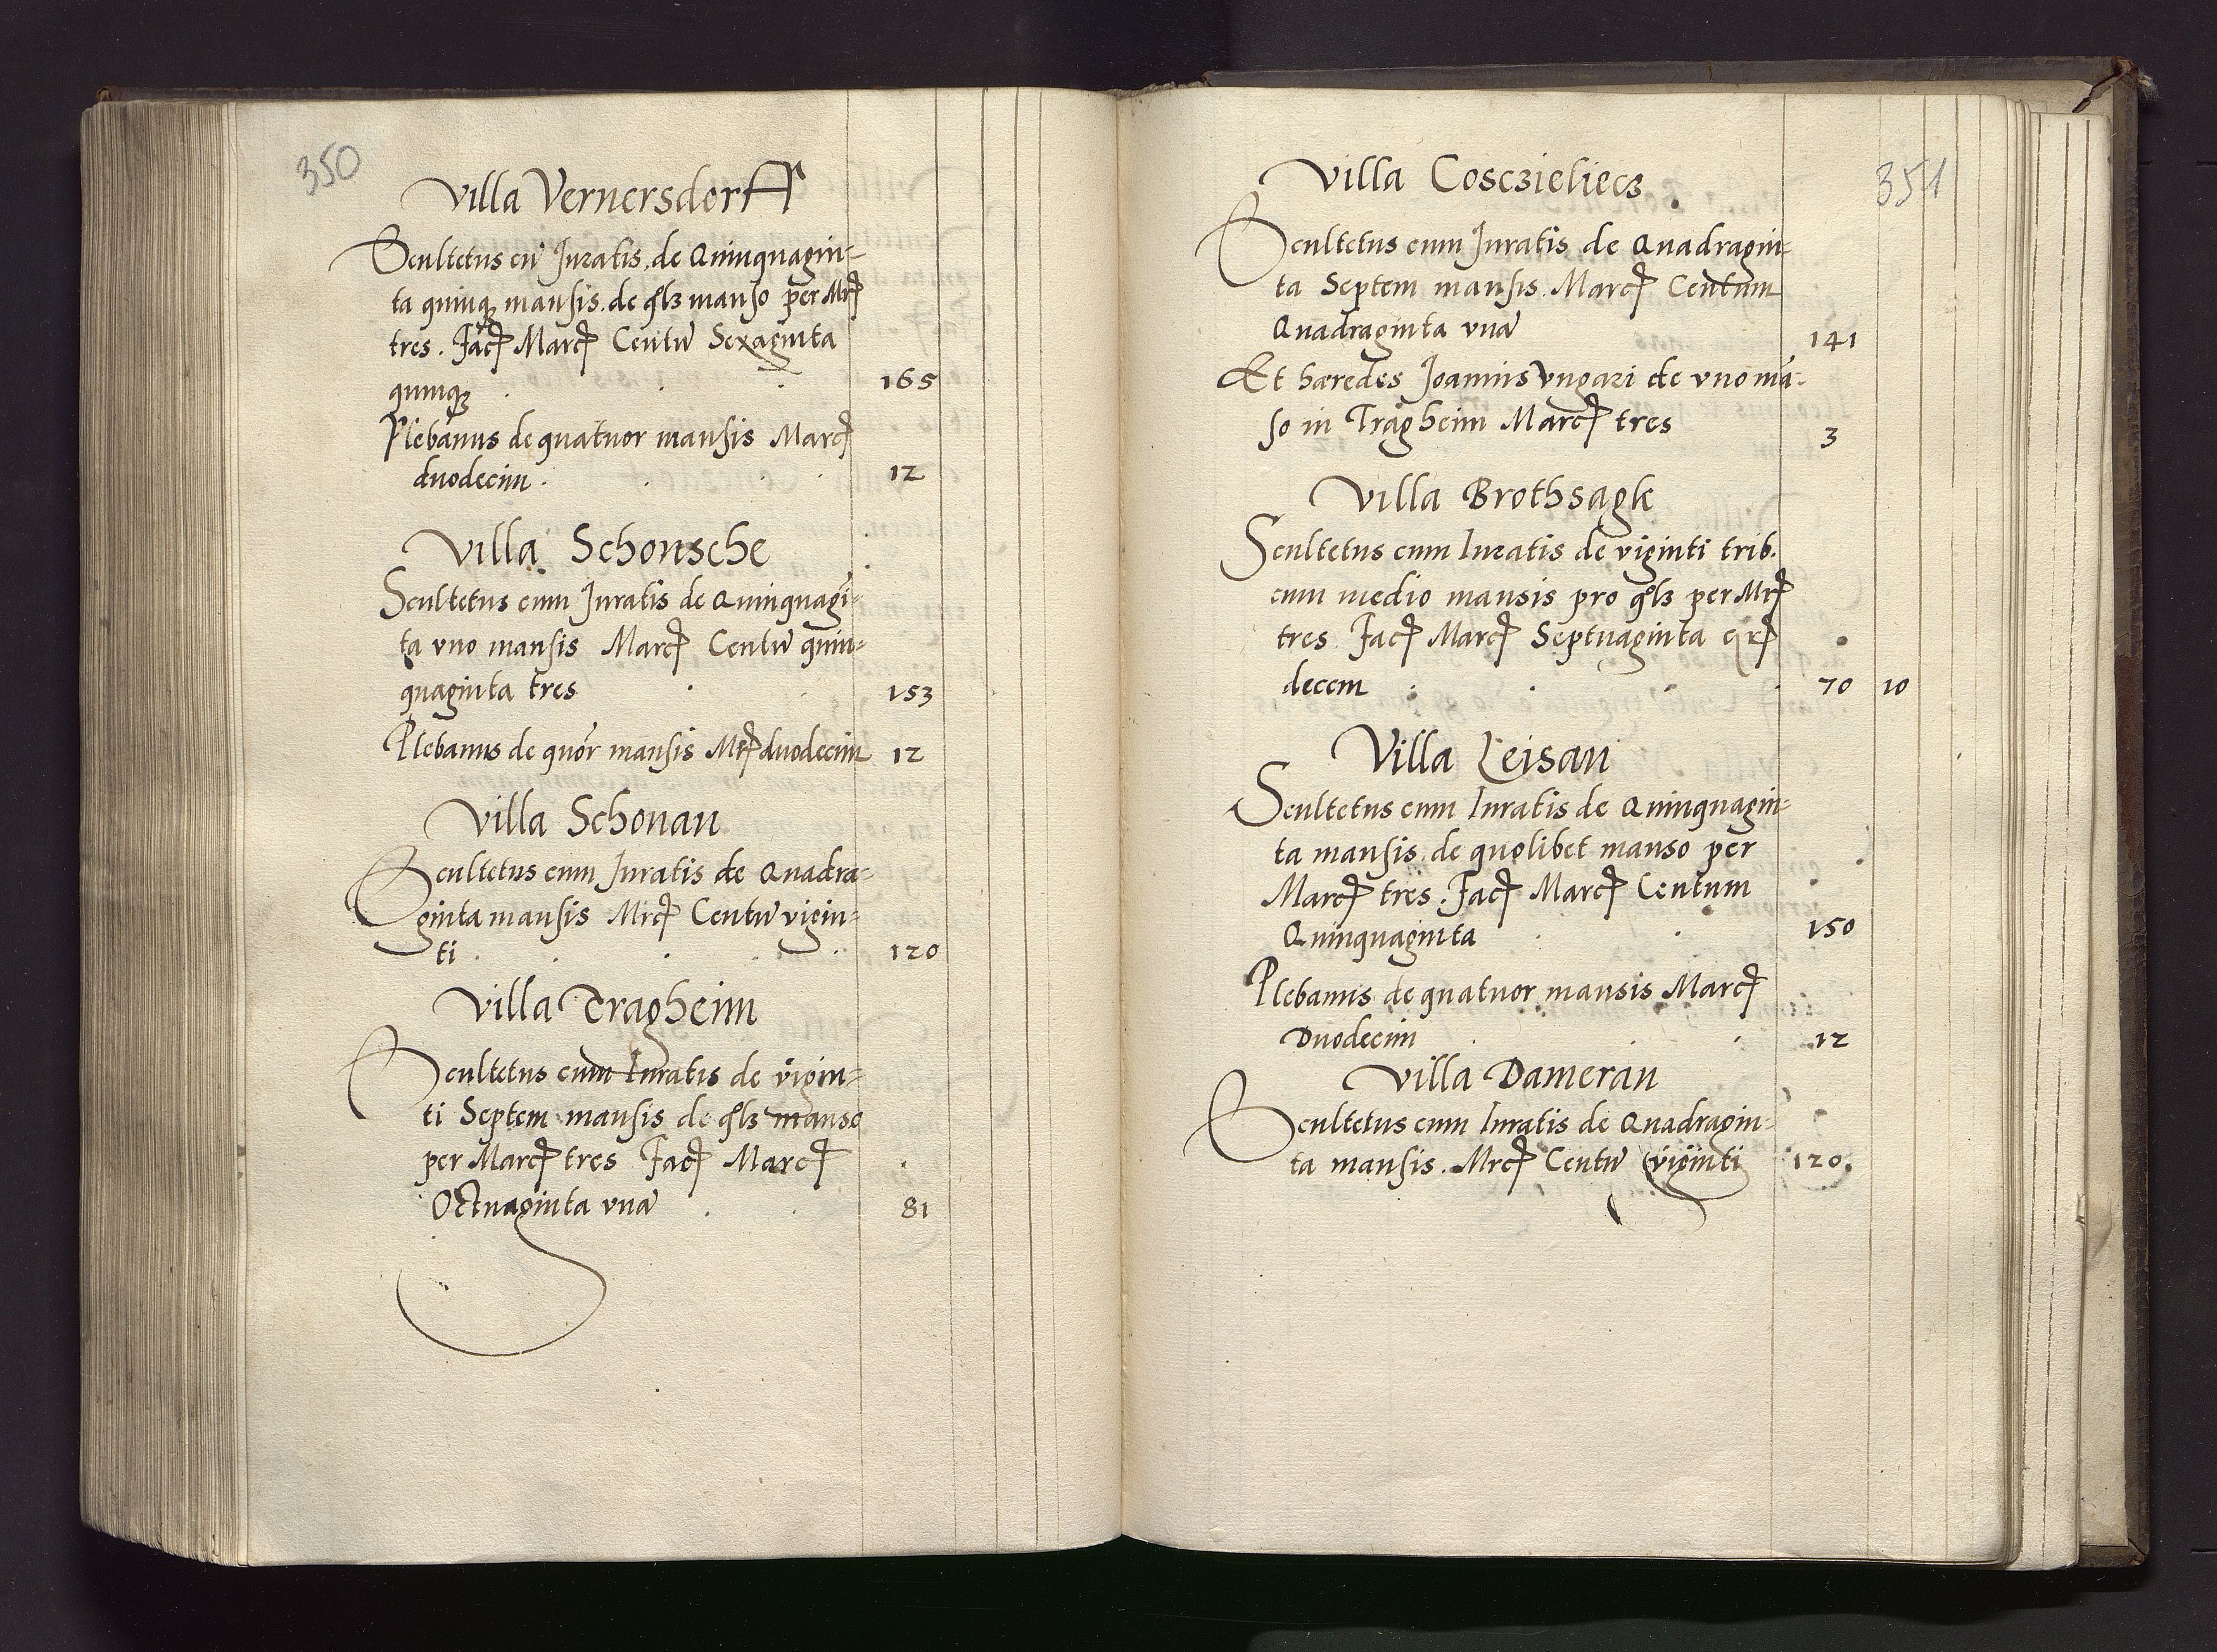 350
Villa Vernersdorff
Scultetus cũ Iuratis de Quinquagin-
ta quinqꝫ mansis. de qlꝫ manso per Mrꝭ
tres. Facꝭ Marcꝭ Centũ Sexaginta
quinqꝫ 165
Plebanus de quatuor mansis Marcꝭ
duodecim 12
Villa Schonsche
Scultetus cum Iuratis de Quinquagi-
ta vno mansis Marcꝭ Centũ quin-
quaginta tres 153
Plebanus de quor mansis Mrꝭ duodecim 12
Villa Schonau
Scultetus cum Iuratis de Quadra-
ginta mansis Mrcꝭ Centũ vigin-
ti 120
Villa Tragheim
Scultetus cum Iuratis de vigin-
ti Septem mansis de qlꝫ manso
per Marcꝭ tres Facꝭ Marcꝭ
Octuaginta vnã 81
351
Villa Cosczieliecz
Scultetus cum Iuratis de Quadragin-
ta Septem mansis. Marcꝭ Centum
Quadraginta vnã 141
Et hæredes Joannis Vngari de vno mã-
so in Tragheim Marcꝭ tres 3
Villa Brothsagk
Scultetus cum Iuratis de viginti trib.
cum medio mansis pro qlꝫ per Mrꝭ
tres Facꝭ Marcꝭ Septuaginta
decem 70 10
Villa Leisau
Scultetus cum Iuratis de Quinquagin-
ta mansis. de quolibet manso per
Marcꝭ tres. Facꝭ Marcꝭ Centum
Quinquaginta 150
Plebanus de quatuor mansis Marcꝭ
Duodecim 12
Villa Damerau
Scultetus cum Iuratis de Quadragin-
ta mansis. Mrcꝭ Centũ viginti 120